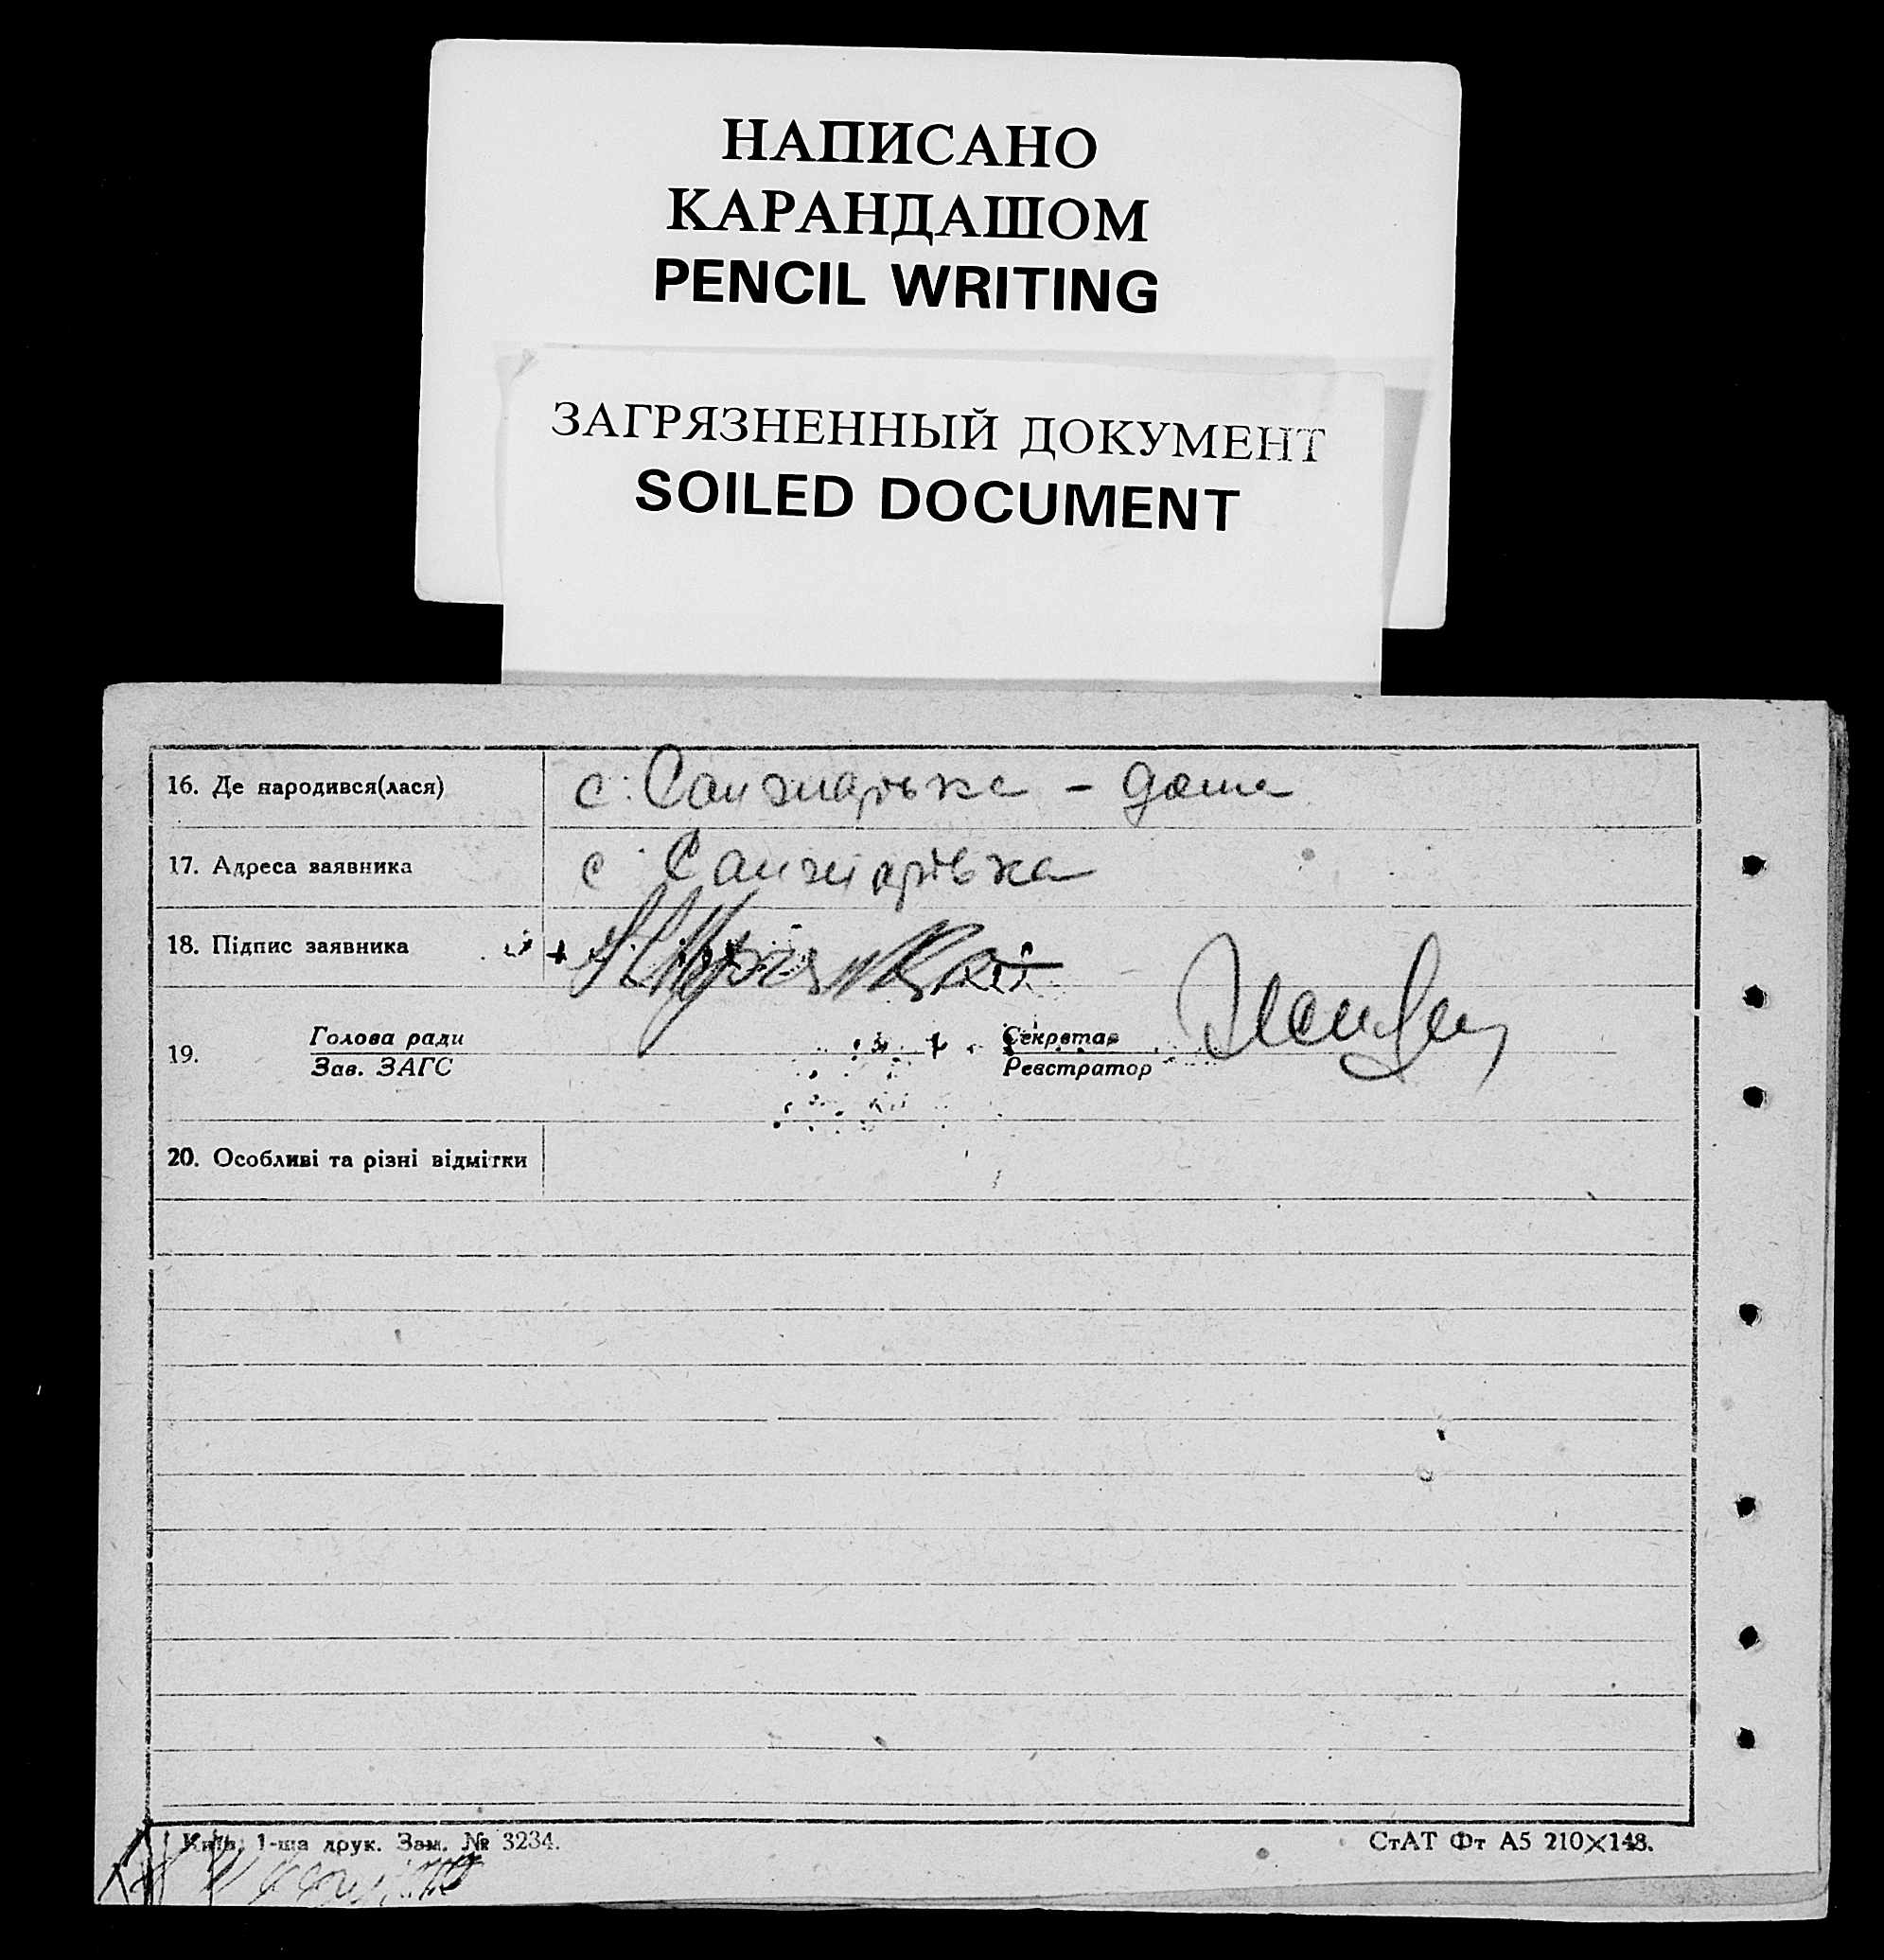 НАПИСАНО
КАРАНДАШОМ
PENCIL WRITING
ЗАГРЯЗНЕННЫЙ ДОКУМЕНТ
SOILED DOCUMENT
16. Де народився(лася) с. Санжарівка – дома
17. Адреса заявника с. Санжарівка
18. Підпис заявника
19. Голова ради Секретар
Зав. ЗАГС Реєстратор
20. Особливі та різні відмітки
Київ, 1-ша друк. Зам. № 3234. СтАТ Фт А5 210×148.